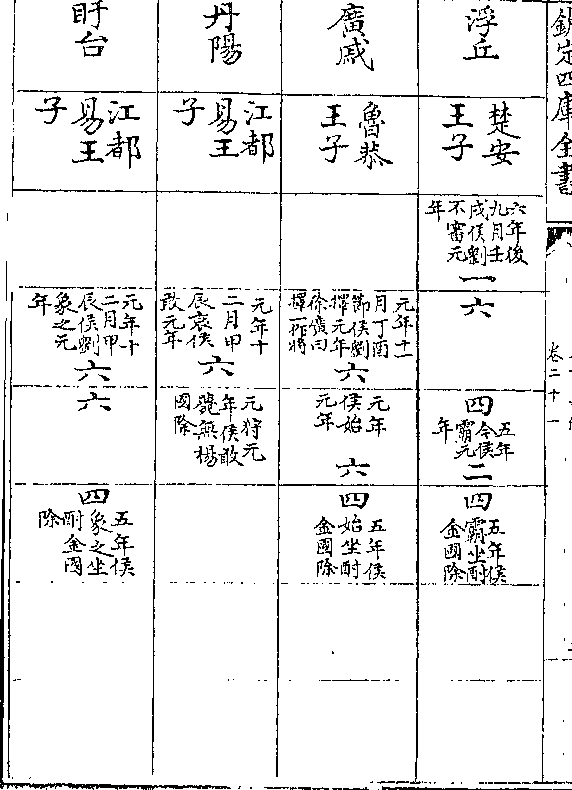 欽定四庫全書
卷二十一
浮丘
楚安
王子
六年後
九月壬
戌侯劉
不審元
年
一
六
四
五年
今侯
霸元
年
二
四
五年侯
霸坐酎
金國除
廣戚
魯恭
王子
元年十一
月丁酉
節侯劉
擇元年
徐廣曰
擇一作將
六
元年
侯始
元年
六
四
五年侯
始坐酎
金國除
丹陽
江都
易王
子
元年十
二月甲
辰哀侯
敢元年
六
元狩元
年侯敢
薨無楊
國除
盱台
江都
易王
子
元年十
二月甲
辰侯劉
象之元
年
六
六
四
五年侯
象之坐
酎金國
除